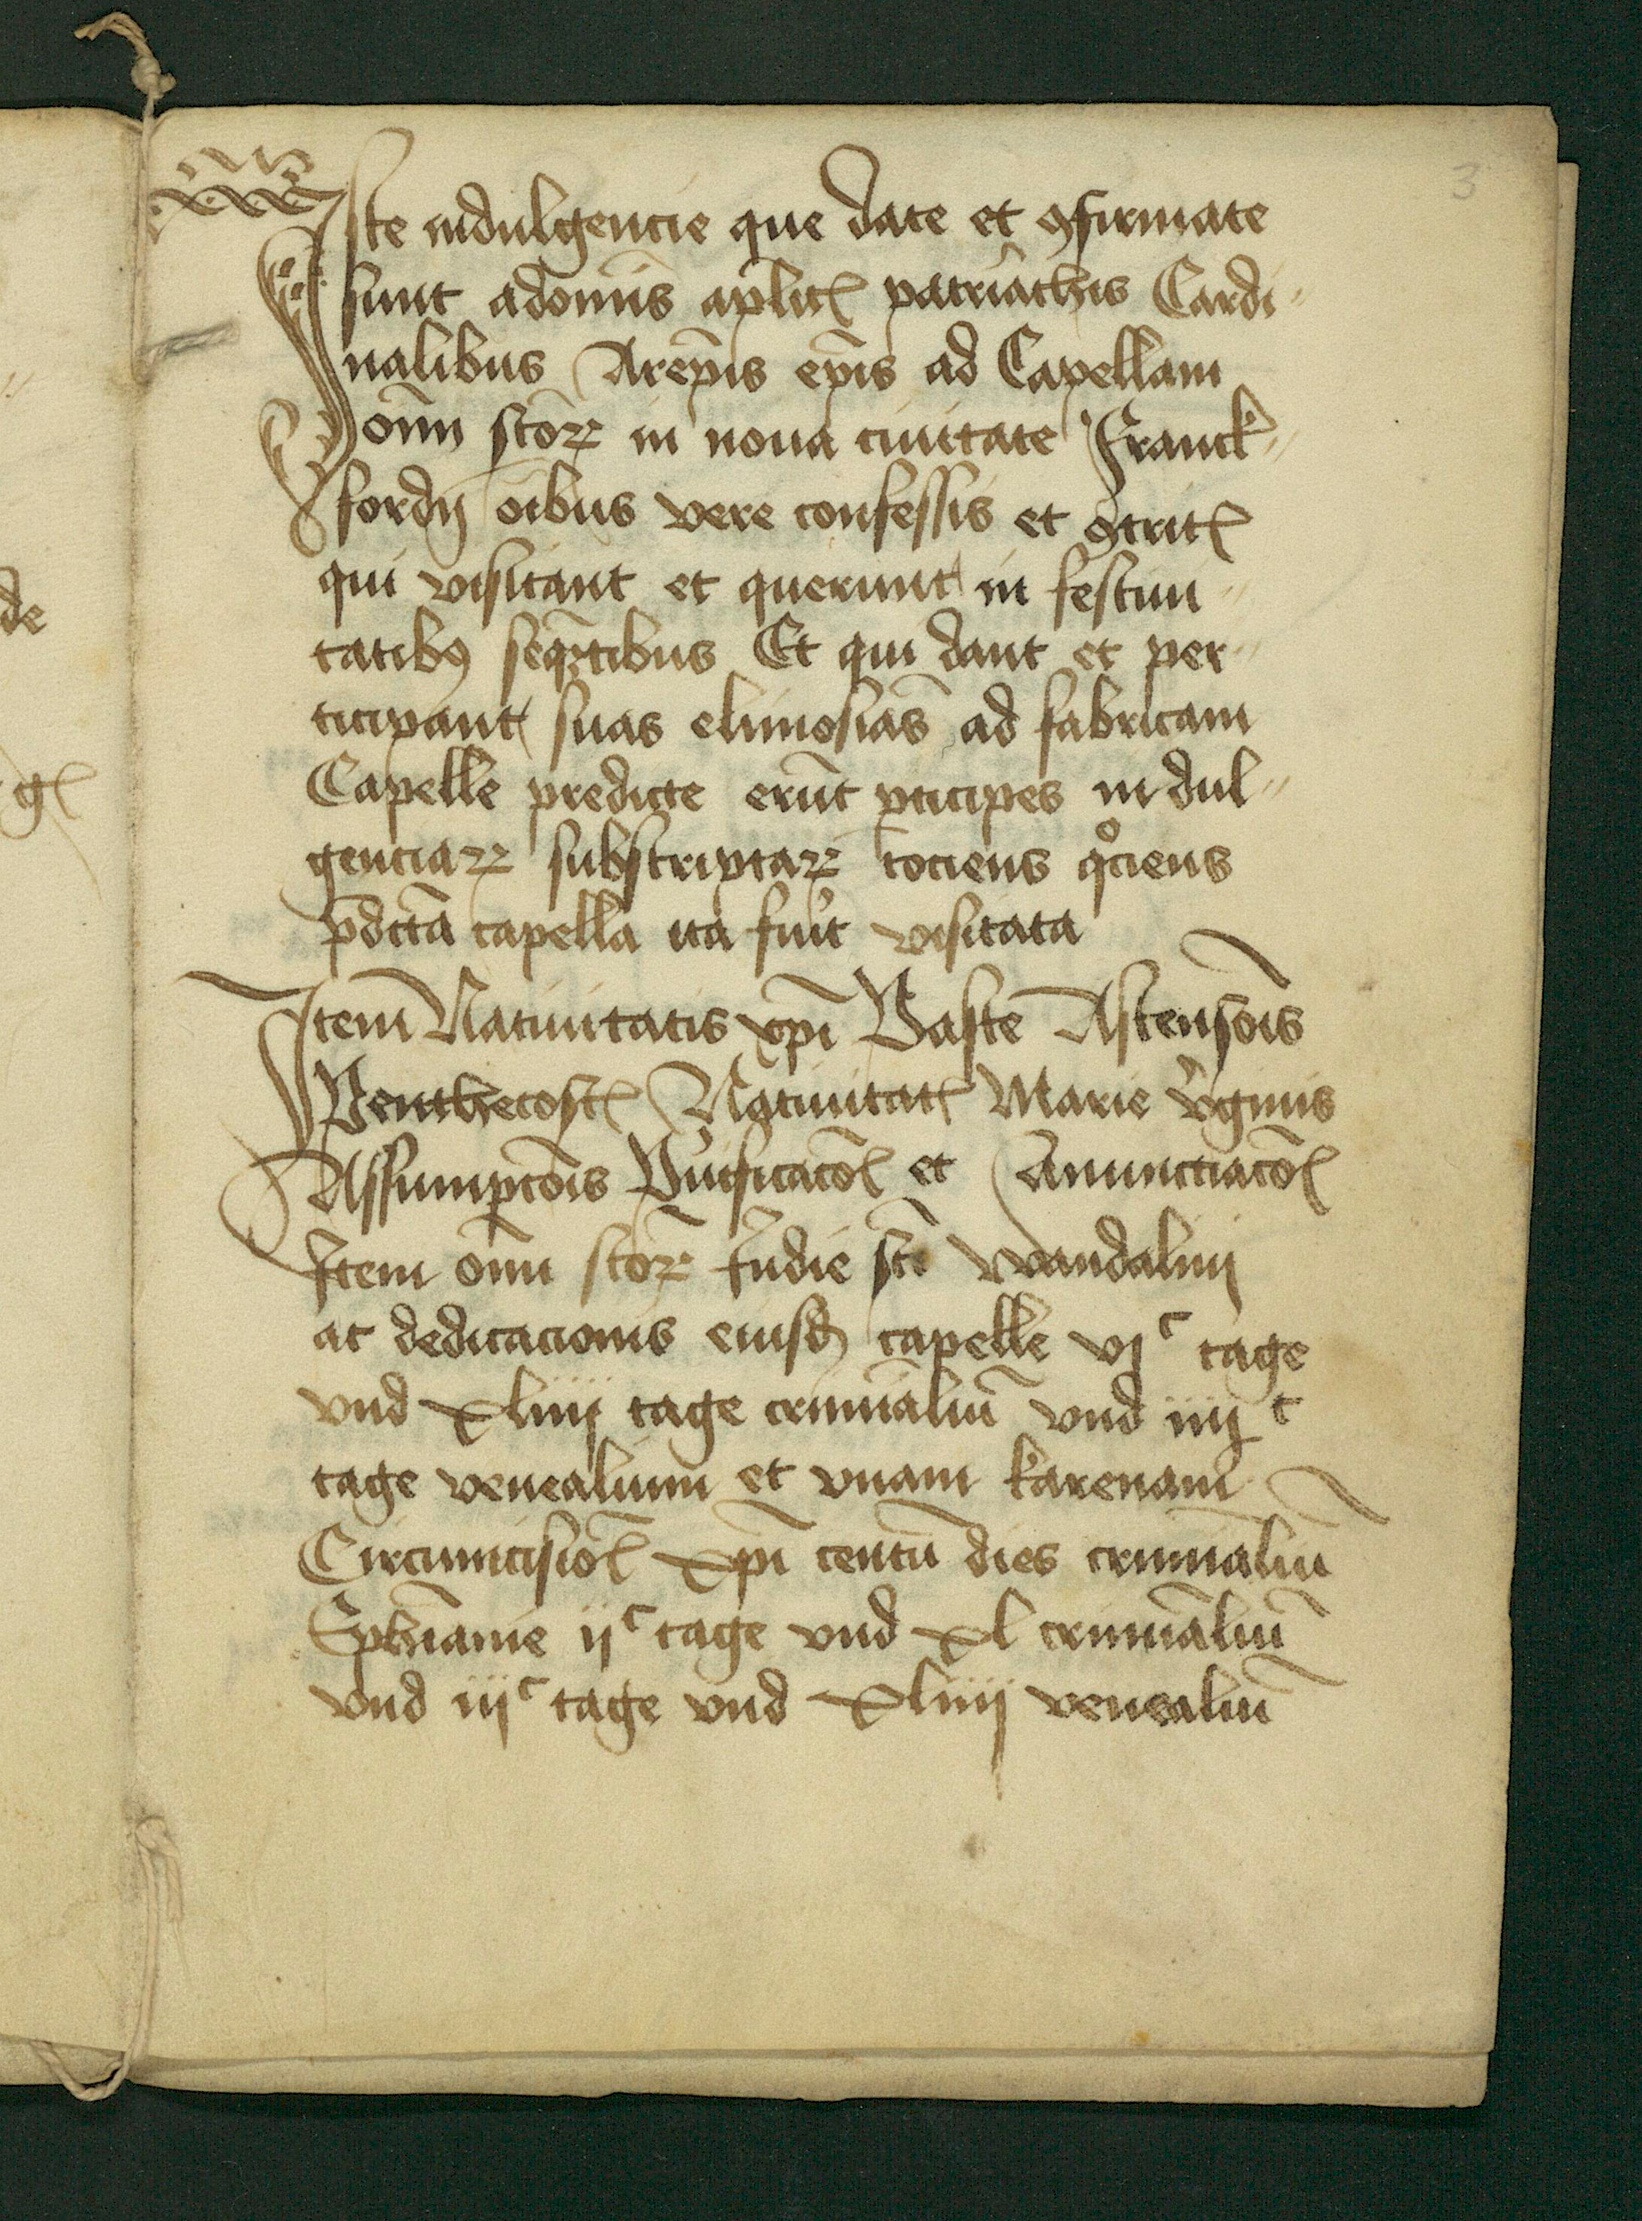 3
Iste indulgencie que date et ꝯfirmate
sunt adomīs aplicꝭ patriarchis Cardi„
nalibus Arepīs epīs ad Capellam
oīm sctōꝝ in noua ciuitate Franck„
fordij oībus vere confessis et ꝯtritꝭ
qui visitant et querunt in festiui„
tatibꝰ seqūtibus Et qui dant et per„
ticipant suas elimosīas ad fabricam
Capelle predicte erūt ꝑticipes in dul„
genciaꝝ subscriptaꝝ tociens qͦciens
p̄dictā capella ita fuīt visitata
Item Natiuitatis xp̄i Pasce Ascensōis
Penthecostꝭ Natiuitatꝭ Marie v̓ginis
Assumpcōis Puīficacōꝭ et Anuncciacōꝭ
Item oīm sctōꝝ In die sctī Wandalinj
ac dedicacionis eiusdꝫ capelle vjᶜ tage
vnd xliiij tage crimīaliū vnd iiijᶜ
tage venealium et vnam karenam
Circumcisiōꝭ xp̄i centū dies crimīaliū
Ephīanie ijᶜ tage vnd xl crimīaliū
vnd iijᶜ tage vnd xliiij venealiū
de
gꝭ